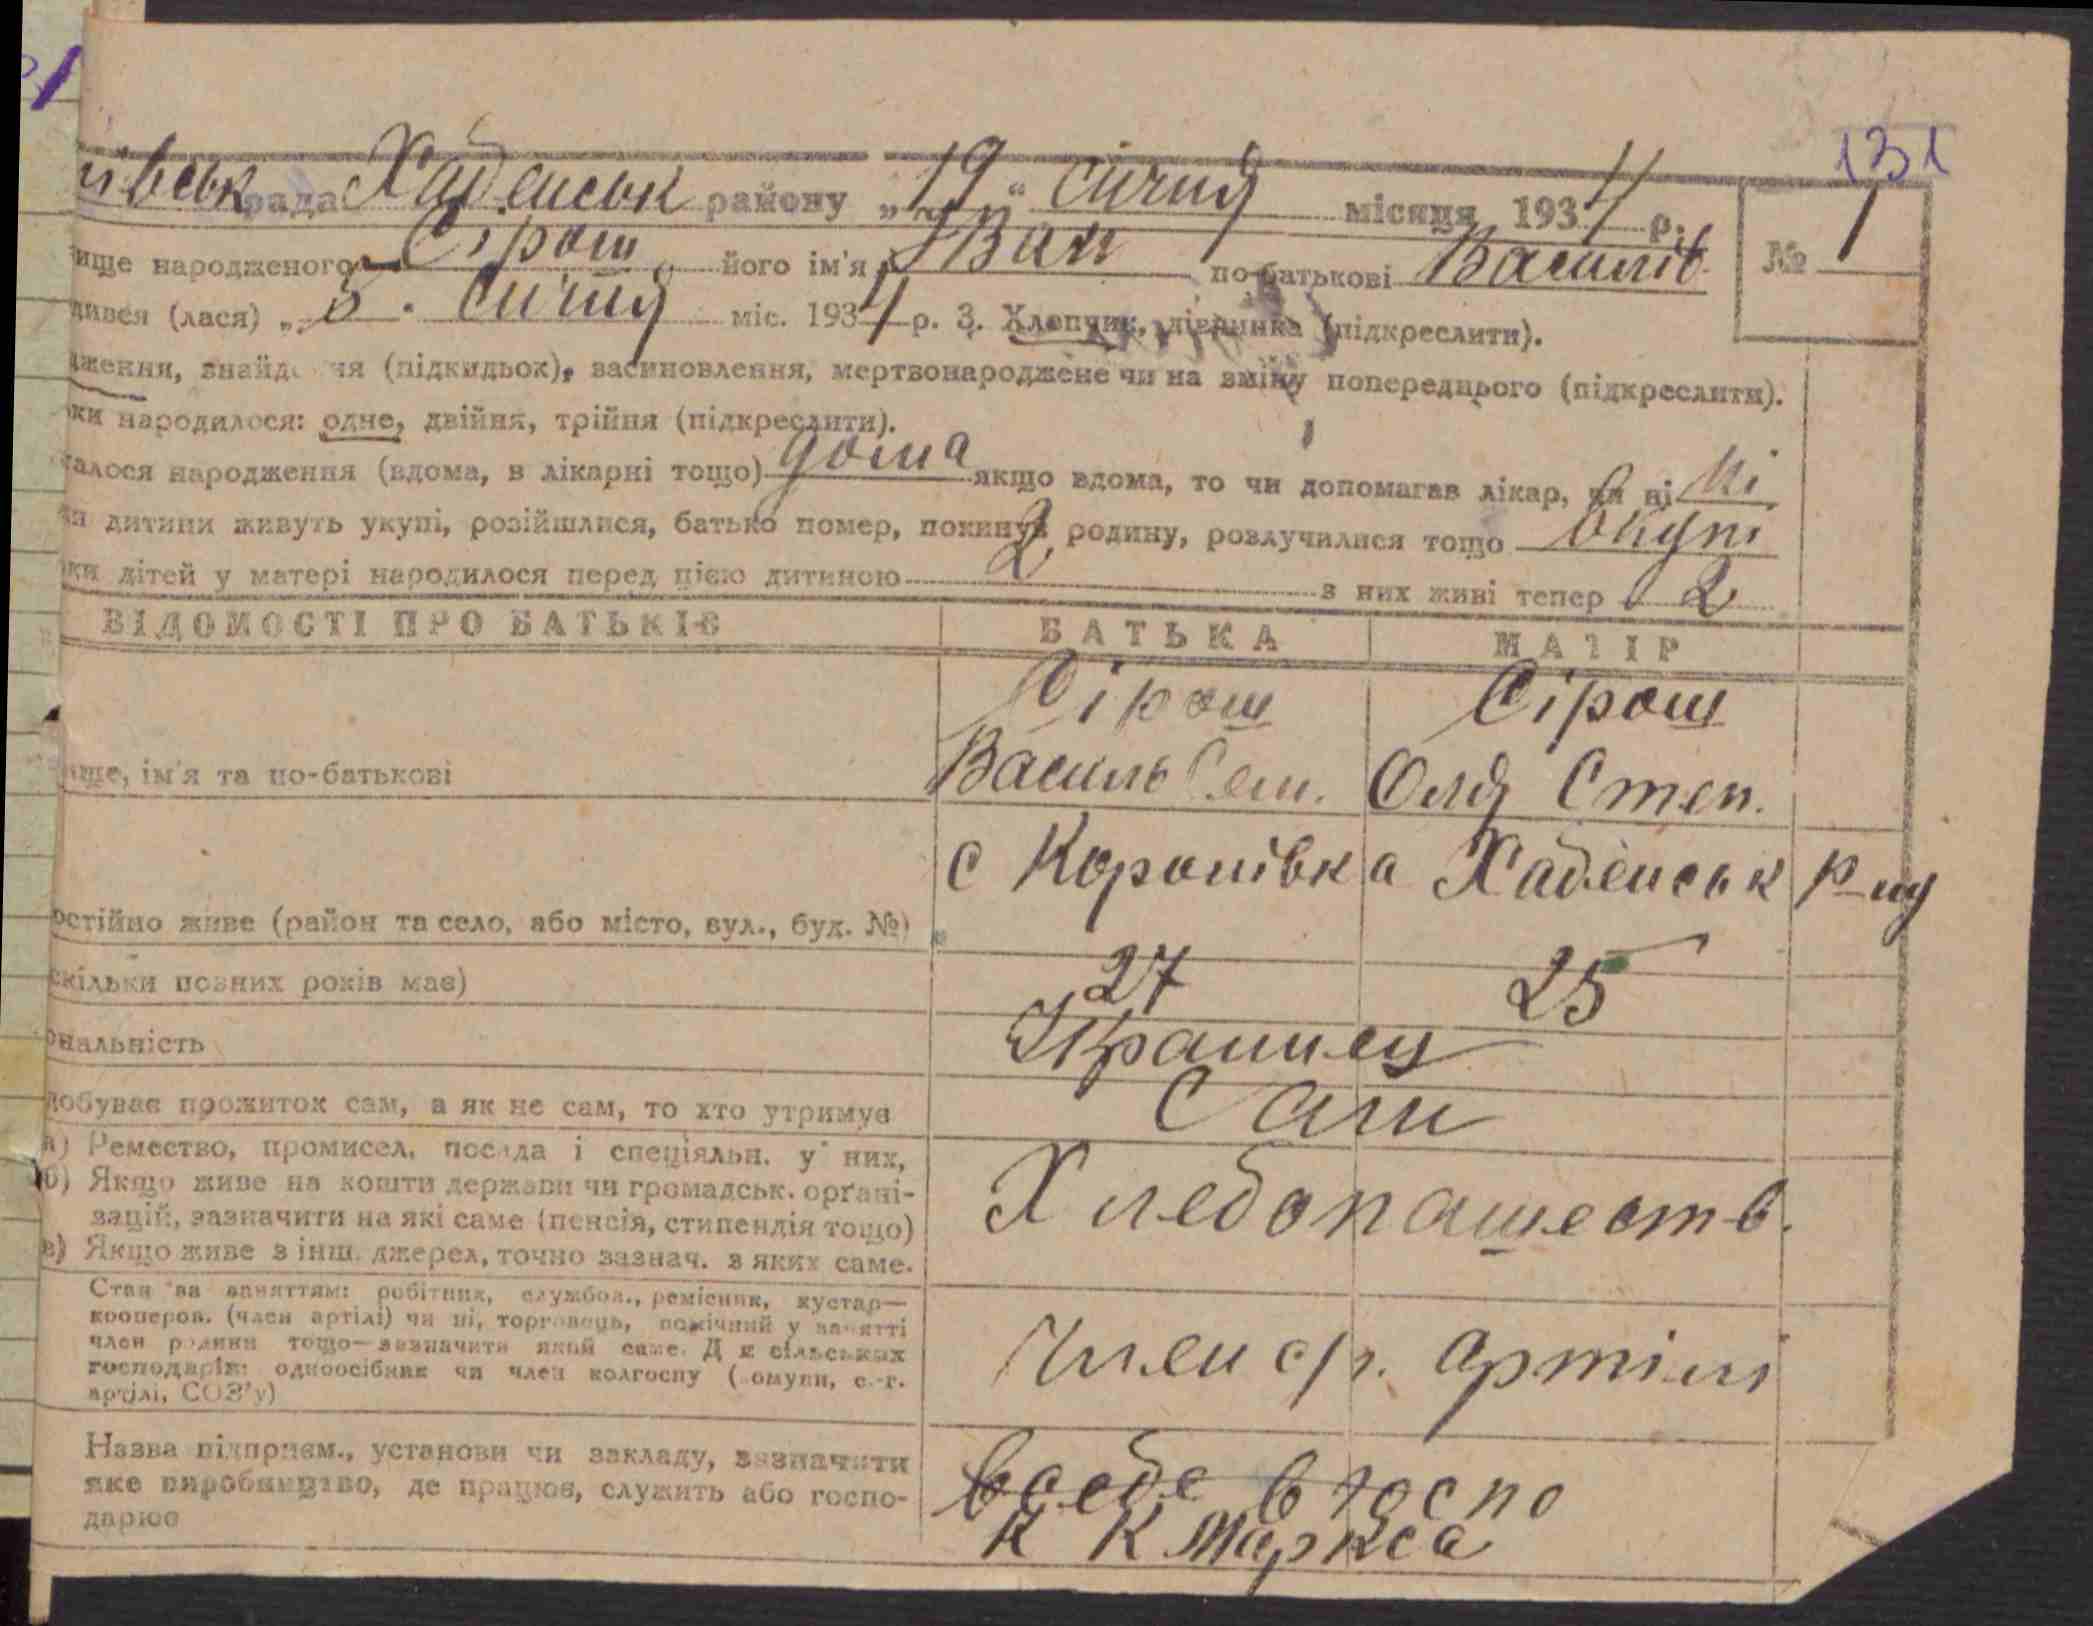 131
івськ рада Хабенськ району „19“ січня місяця 1934 р. № 1
ище народженого Сірош його ім'я Іван по батькові Василів
дився (лася) „ 5. січня міс. 1934 р. 3. Хлопчик, дівчинка (підкреслити).
дження, знайдення (підкидьок), васиновлення, мертвонароджене чи на зміну попереднього (підкреслити).
ьки народилося: одне, двійня, трійня (підкреслити).
алося народження (вдома, в лікарні тощо) дома якщо вдома, то чи допомагав лікар, чи ні Ні
ки дитини живуть укупі, розійшлися, батько помер, покинув родину, розлучилися тощо вкупі
ьки дітей у матері народилося перед цією дитиною 2 з них живі тепер 2
ВІДОМОСТІ ПРО БАТЬКІВ БАТЬКА МАТІР
Сірош Сірош
ище, ім'я та по-батькові Василь Сем. Оля Степ.
с Коронівка Хабенськ р-ну
остійно живе (район та село, або місто, вул., буд. №)
скільки повних років має) 27 25
ональність Украинец
добуває прожиток сам, а як не сам, то хто утримує Сам
а) Ремество, промисел, посада і спеціяльн. у них,
б) Якщо живе на кошти держави чи громадськ. орґані-
зацій, зазначити на які саме (пенсія, стипендія тощо)
в) Якщо живе з інш. джерел, точно зазнач. з яких саме.
Хлебопашеств.
Стан за заняттям: робітник, службов., ремісник, кустар—
коопером. (член артілі) чи ні, торговець, помічний у занятті
член родини тощо—зазначити який саме. Для сільських
господарів: одноосібник чи член колгоспу (комуни, с.-г.
артілі, СОЗ'у)
Член с/г. артілі
Назва підприєм., установи чи закладу, зазначити
яке виробництво, де працює, служить або госпо-
дарює
в себе в госпо
к К Маркса